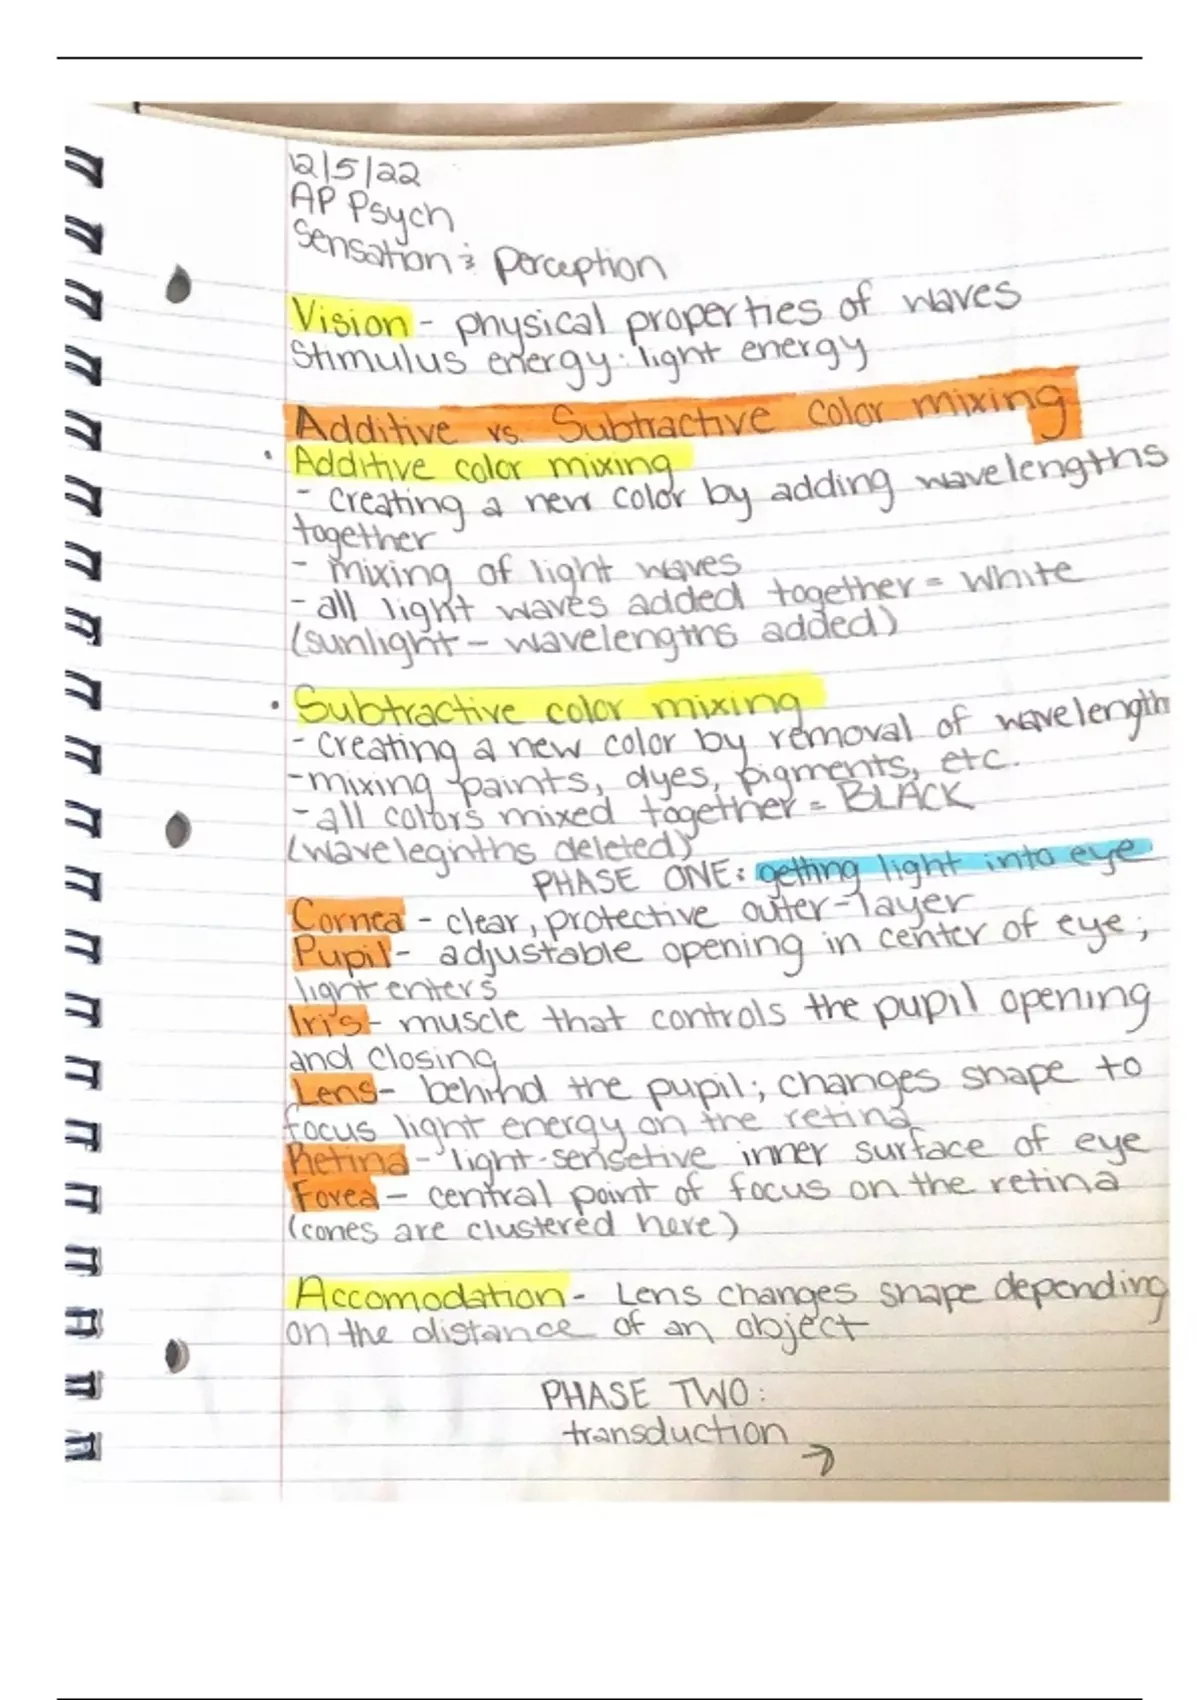 12/5/22
AP Psych
Sensation & perception
Vision - physical properties of waves
Stimulus energy: light energy
Additive vs. Subtractive color mixing
• Additive color mixing
- creating a new color by adding wavelengths
together
- mixing of light waves
- all light waves added together = white
(sunlight - wavelengths added)
• Subtractive color mixing
- creating a new color by removal of wavelength
- mixing paints, dyes, pigments, etc.
- all colors mixed together = BLACK
(waveleginths deleted)
PHASE ONE: getting light into eye
Cornea - clear, protective outer-layer
Pupil - adjustable opening in center of eye;
light enters
Iris - muscle that controls the pupil opening
and closing
Lens - behind the pupil; changes shape to
focus light energy on the retina
Retina - light-sensetive inner surface of eye
Fovea - central point of focus on the retina
(cones are clustered here)
Accomodation - Lens changes shape depending
on the distance of an object
PHASE TWO:
transduction →